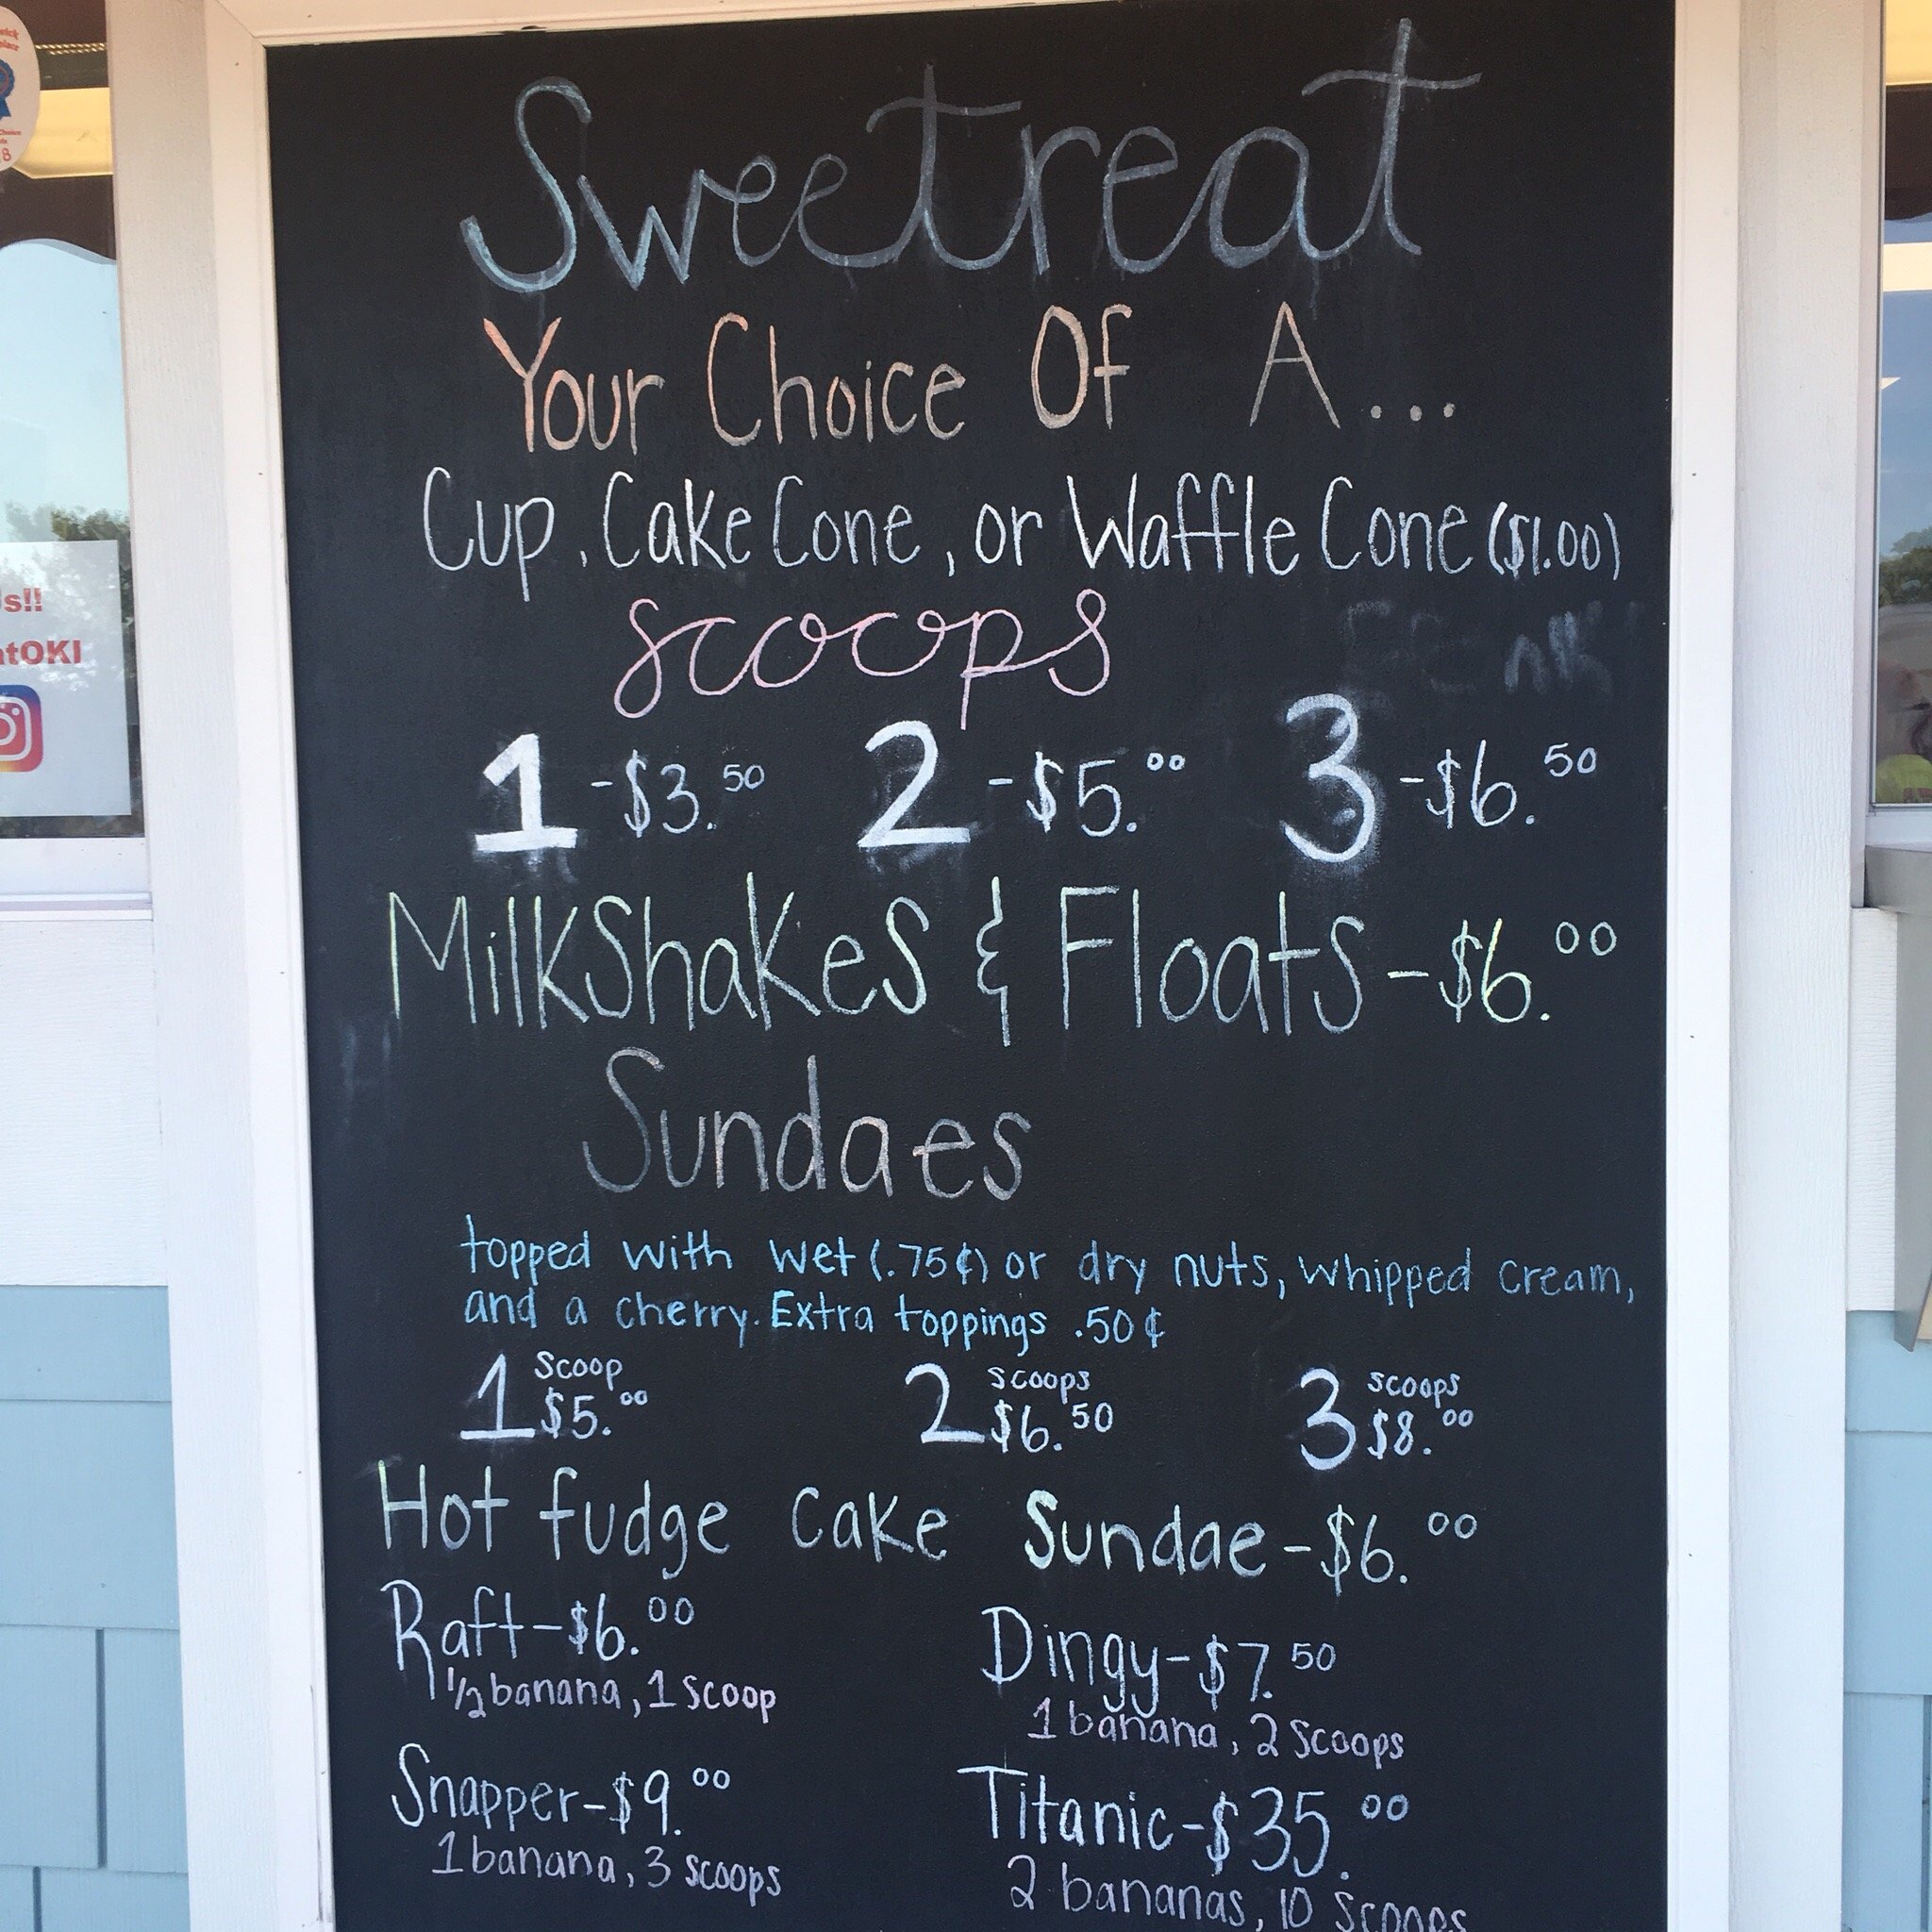 Sweetreat
Your Choice Of A...
Cup, Cake Cone, or Waffle Cone ($1.00)
scoops
1 -$3.50 2 -$5.00 3 -$6.50
MilkShakes & Floats-$6.00
Sundaes
topped with wet (.75¢) or dry nuts, whipped cream,
and a cherry. Extra toppings .50¢
1 Scoop $5.00 2 scoops $6.50 3 scoops $8.00
Hot fudge cake Sundae-$6.00
Raft-$6.00
1/2 banana, 1 scoop
Dingy-$7.50
1 banana, 2 Scoops
Snapper-$9.00
1 banana, 3 scoops
Titanic-$35.00
2 bananas, 10 Scoops
s!!
atOKI